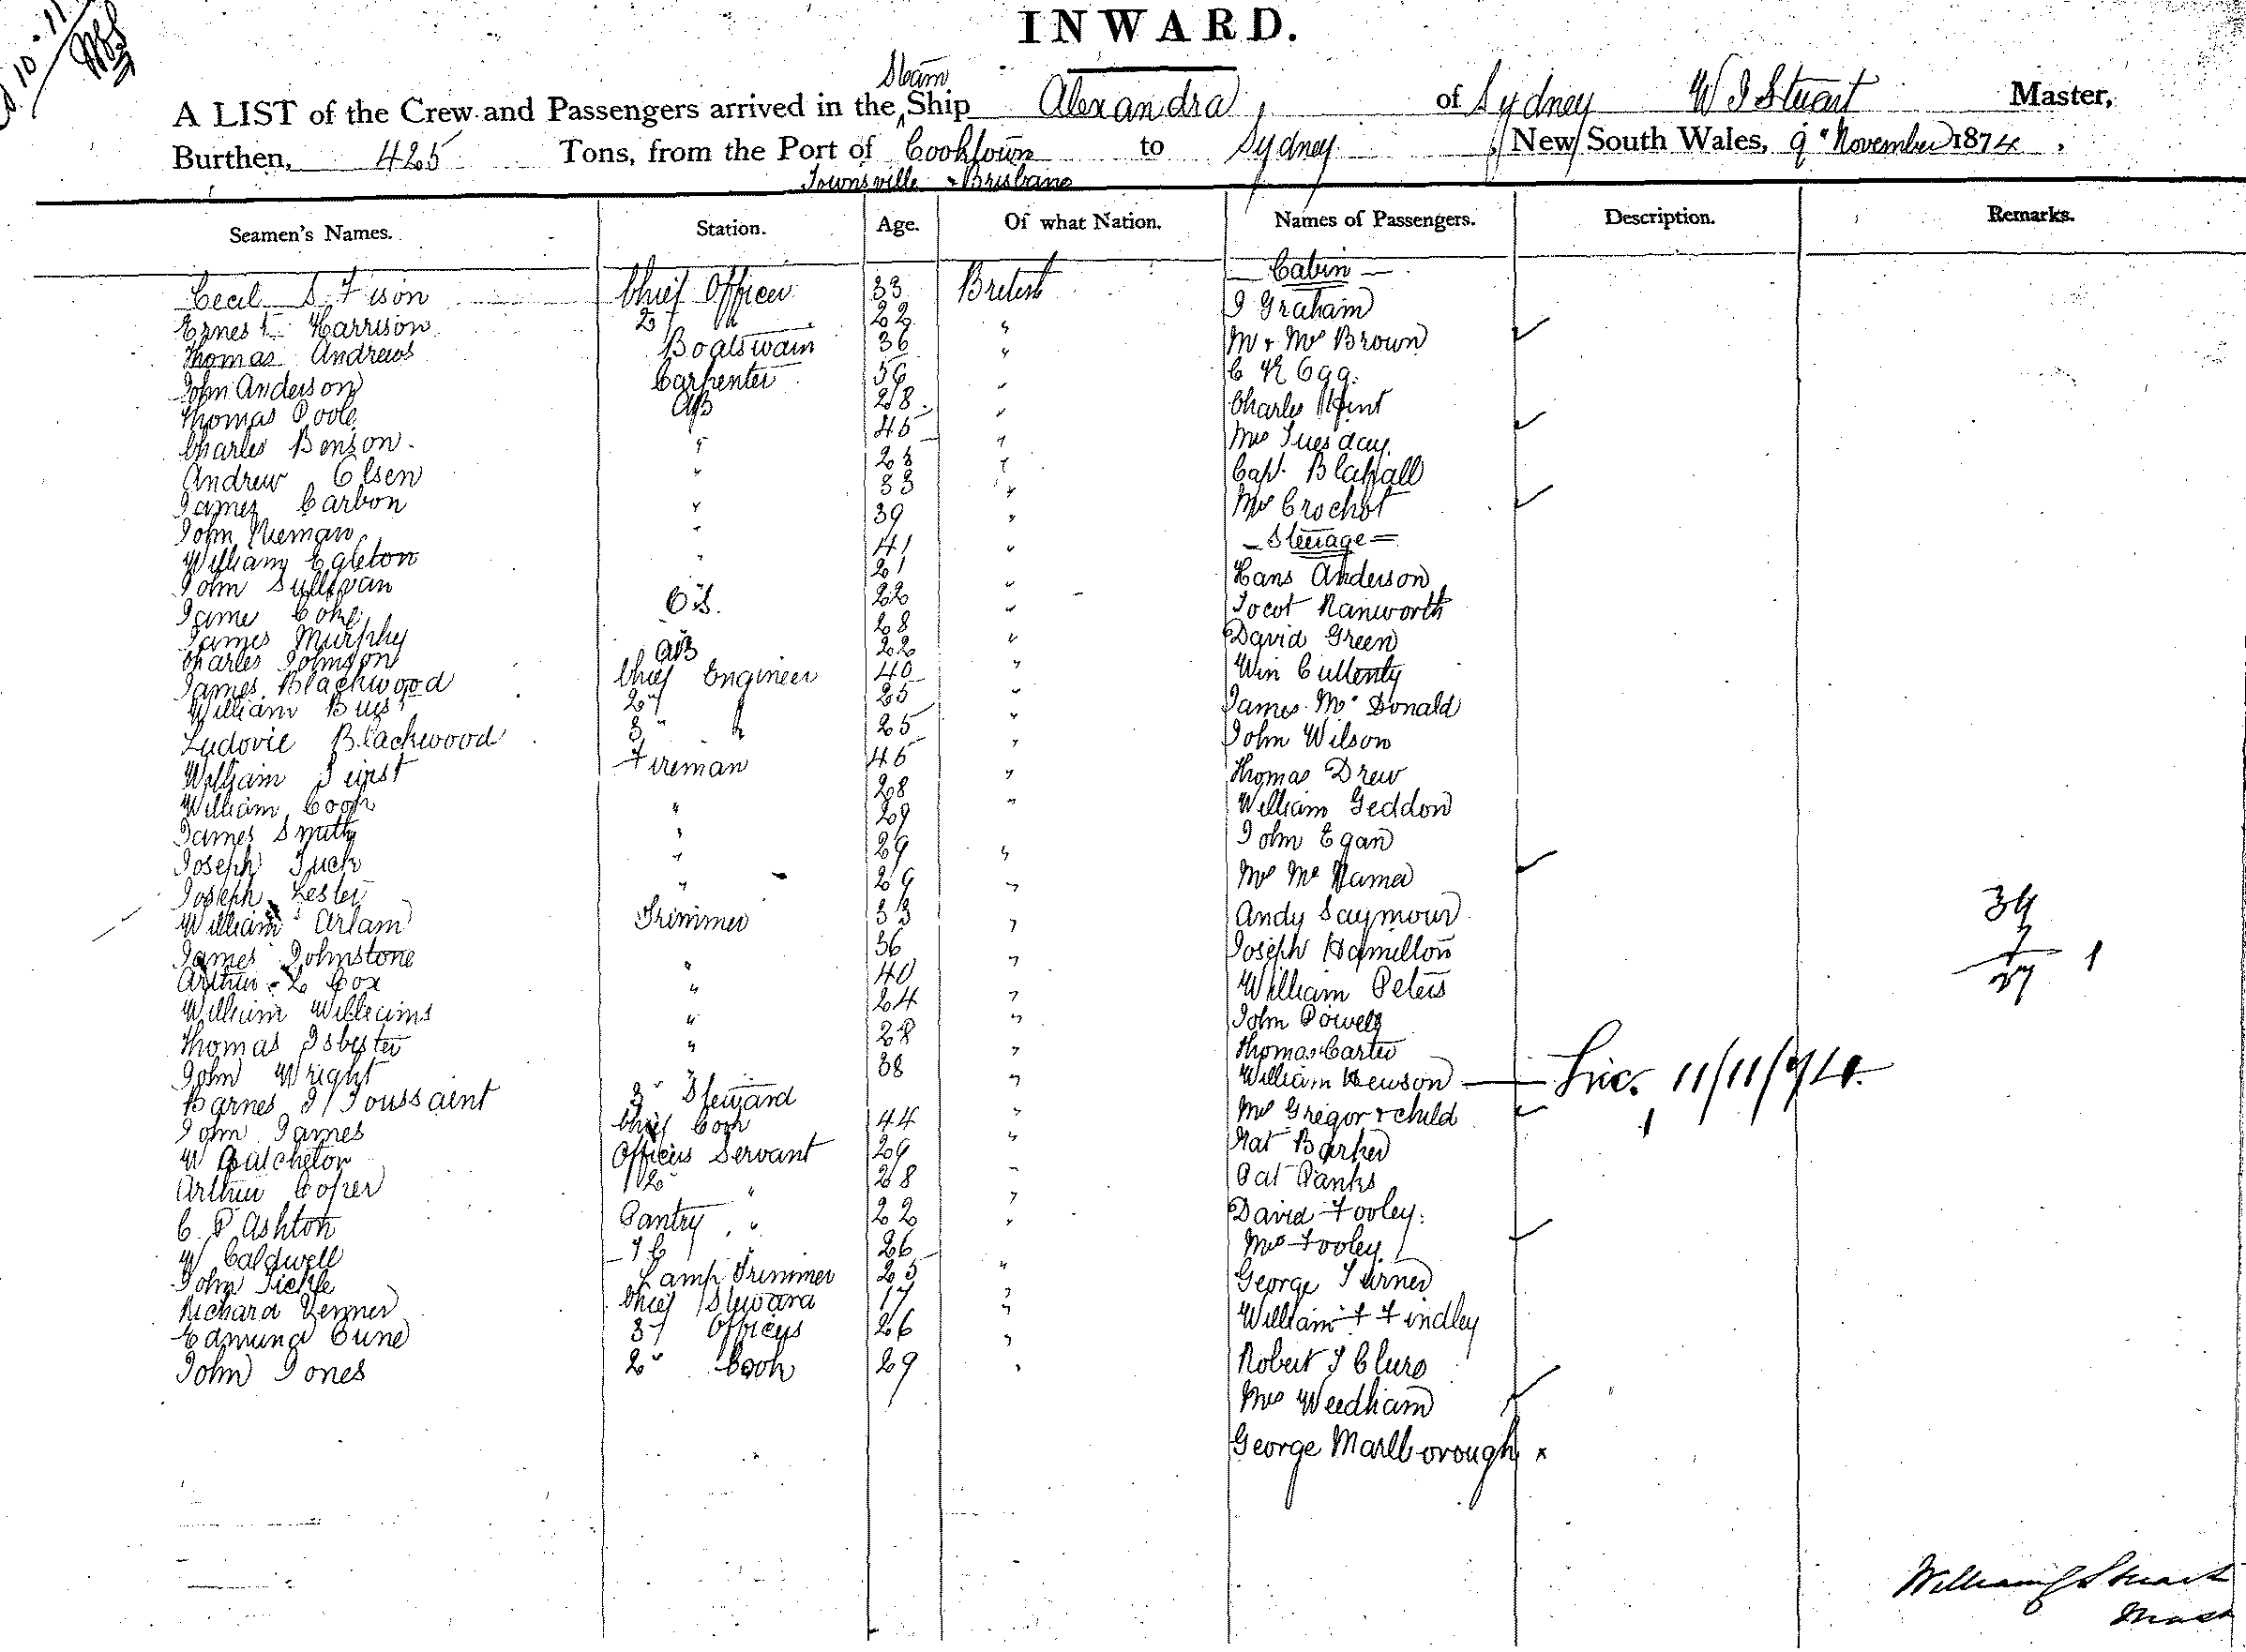 10-11
INWARD.
Steam
A LIST of the Crew and Passengers arrived in the Ship Alexandra of Sydney W J Stuart Master,
Burthen, 425 Tons, from the Port of Cooktown to Sydney, New South Wales, 9" November 1874,
Townsville & Brisbane
Seamen's Names. Station. Age. Of what Nation. Names of Passengers. Description. Remarks.
— Cabin —
Cecil S Fison Chief Officer 33 British J Graham
Ernest Harrison 2 " 22 " M & Mrs Brown
Thomas Andrews Boatswain 36 " C R Egg.
John Anderson Carpenter 56 " Charles Hunt
Thomas Poole AB 28 " Mrs Tuesday.
Charles Benson " 45 " Capt. Blackall
Andrew Olsen " 28 " Mrs Crochot
James Carbon " 33 " — Steerage —
John Nieman " 39 " Hans Anderson
William Egleton " 41 " Ranworth
John Sullivan " 21 " David Green
Jame Coke O.S. 22 " Win Cullenty
James Murphy 28 " James Mc Donald
Charles Johnson AB 22 " John Wilson
James Blackwood Chief Engineer 40 " Thomas Drew
William 2 25 " William Geddon
Ludovic Blackwood 3 " 25 " John Egan
William Fireman 45 " Mrs Mc Namea
William Cook " 28 " Andy Saymour
James Smith " 29 Joseph Hamilton
Joseph Tuck " 29 " William Peters
Joseph Lester " 29 " John Powell
William Arlam Trimmer 33 " Thomas Carter
James Johnstone 36 " William Hewson — 11/11/74.
Arthur L Cox " 40 " Mrs Gregor & child
William Williams " 24 " Nat Barker
Thomas Isbester " 28 " Pat Panks
John Wright " 38 " David Fooley.
Barnes J Toussaint 3" Steward " Mrs Fooley
John James Chief Cook 44 " George Turner
W Batchelor Officers Servant 29 " William F Findley
Arthur Coper 2" " 28 " Robert J Cluro
C. P Ashton Pantry " 22 " Mrs Weedham
W Caldwell 26 " George Marlborough x
John Tickle Lamp Trimmer 25 "
Richard Venner Chief Steward 17 "
Edmund Cune 3 Officers 26 "
John Jones 2" Cook 29 "
34
7
27 1
William J Stuart
Mast